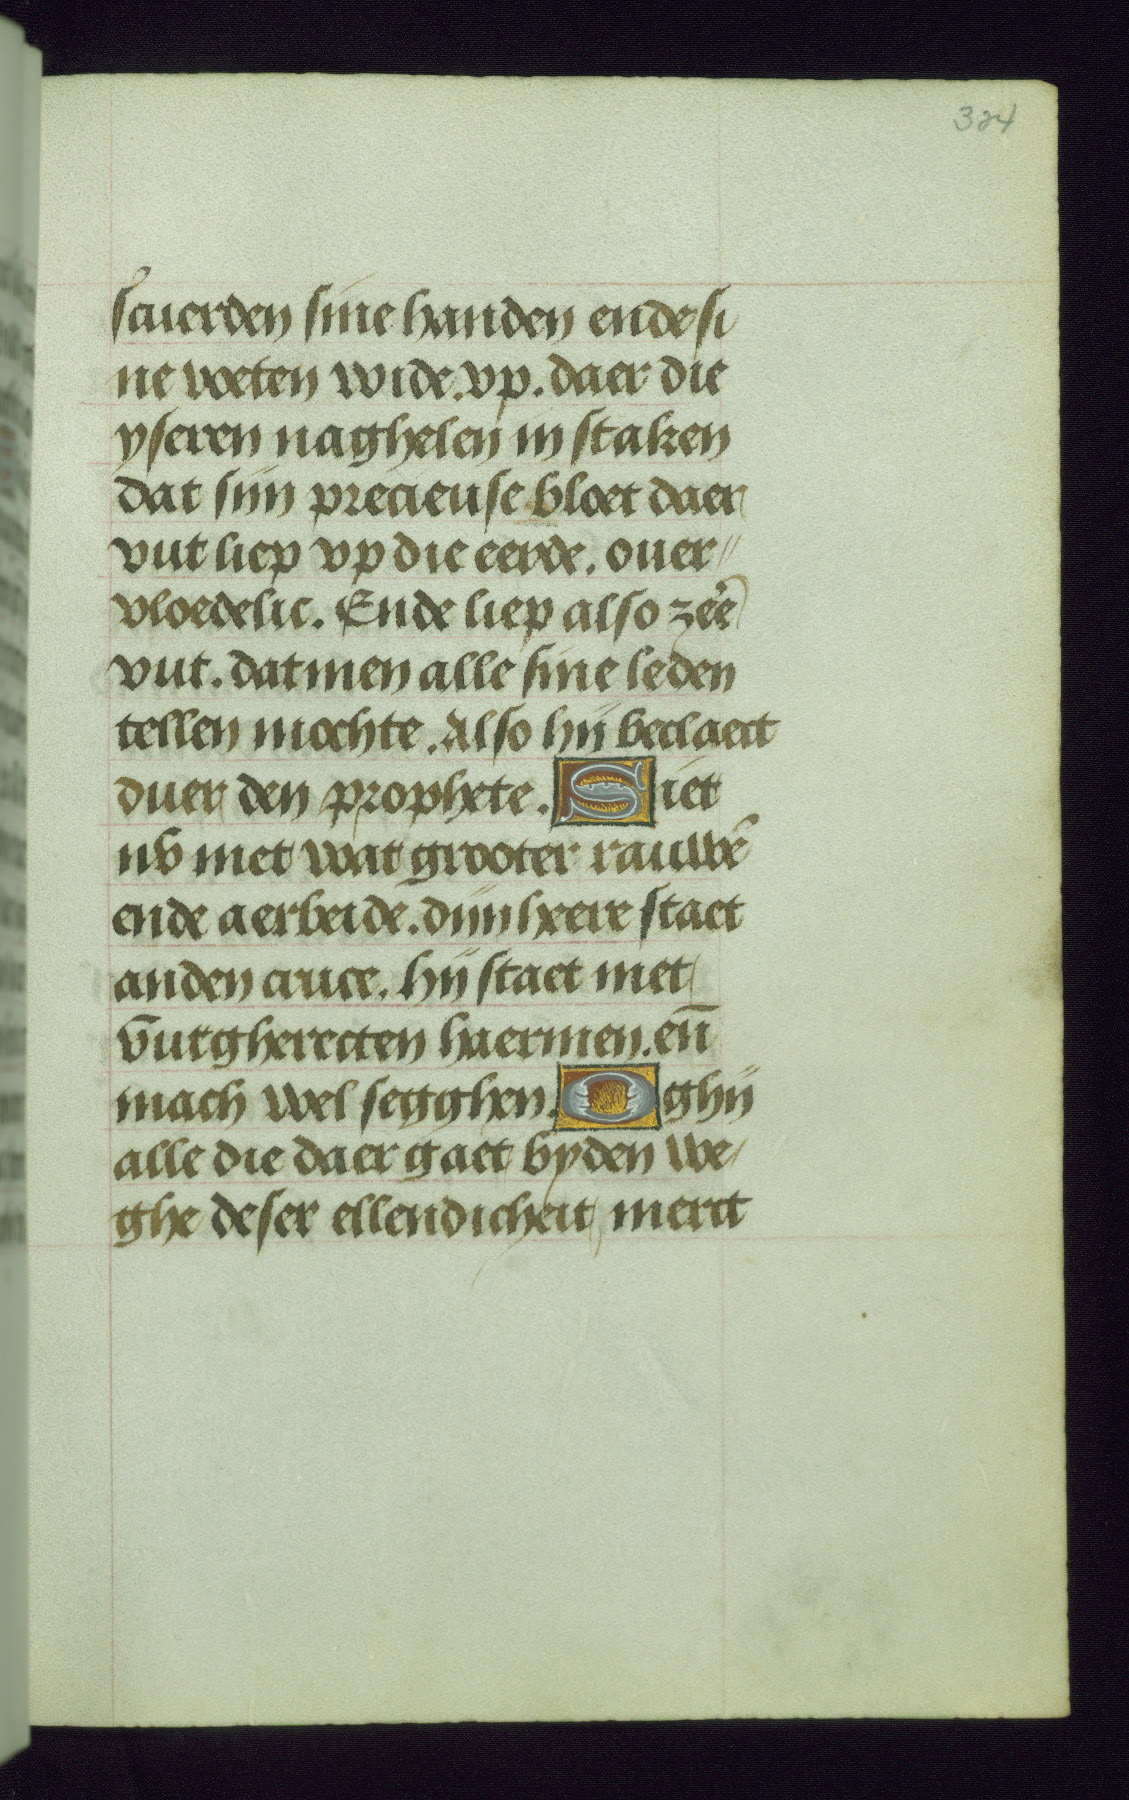 324
scuerden sine handen ende si
ne voeten wide. vp. daer die
yseren naghelen in staken
dat sijn precieuse bloet daer
vut liep vp die eerde. ouer
vloedelic. Ende liep also zeẽ
vut. datmen alle sine leden
tellen mochte. Also hij beclaect
duer den prophete. Siet
nv met wat grooter rauwẽ
ende aerbeide. dijn heere staet
anden cruce. hij staet met
vutgherecten haermen. en̄
mach wel segghen. O ghij
alle die daer gaet byden we
ghe deser ellendicheit merct